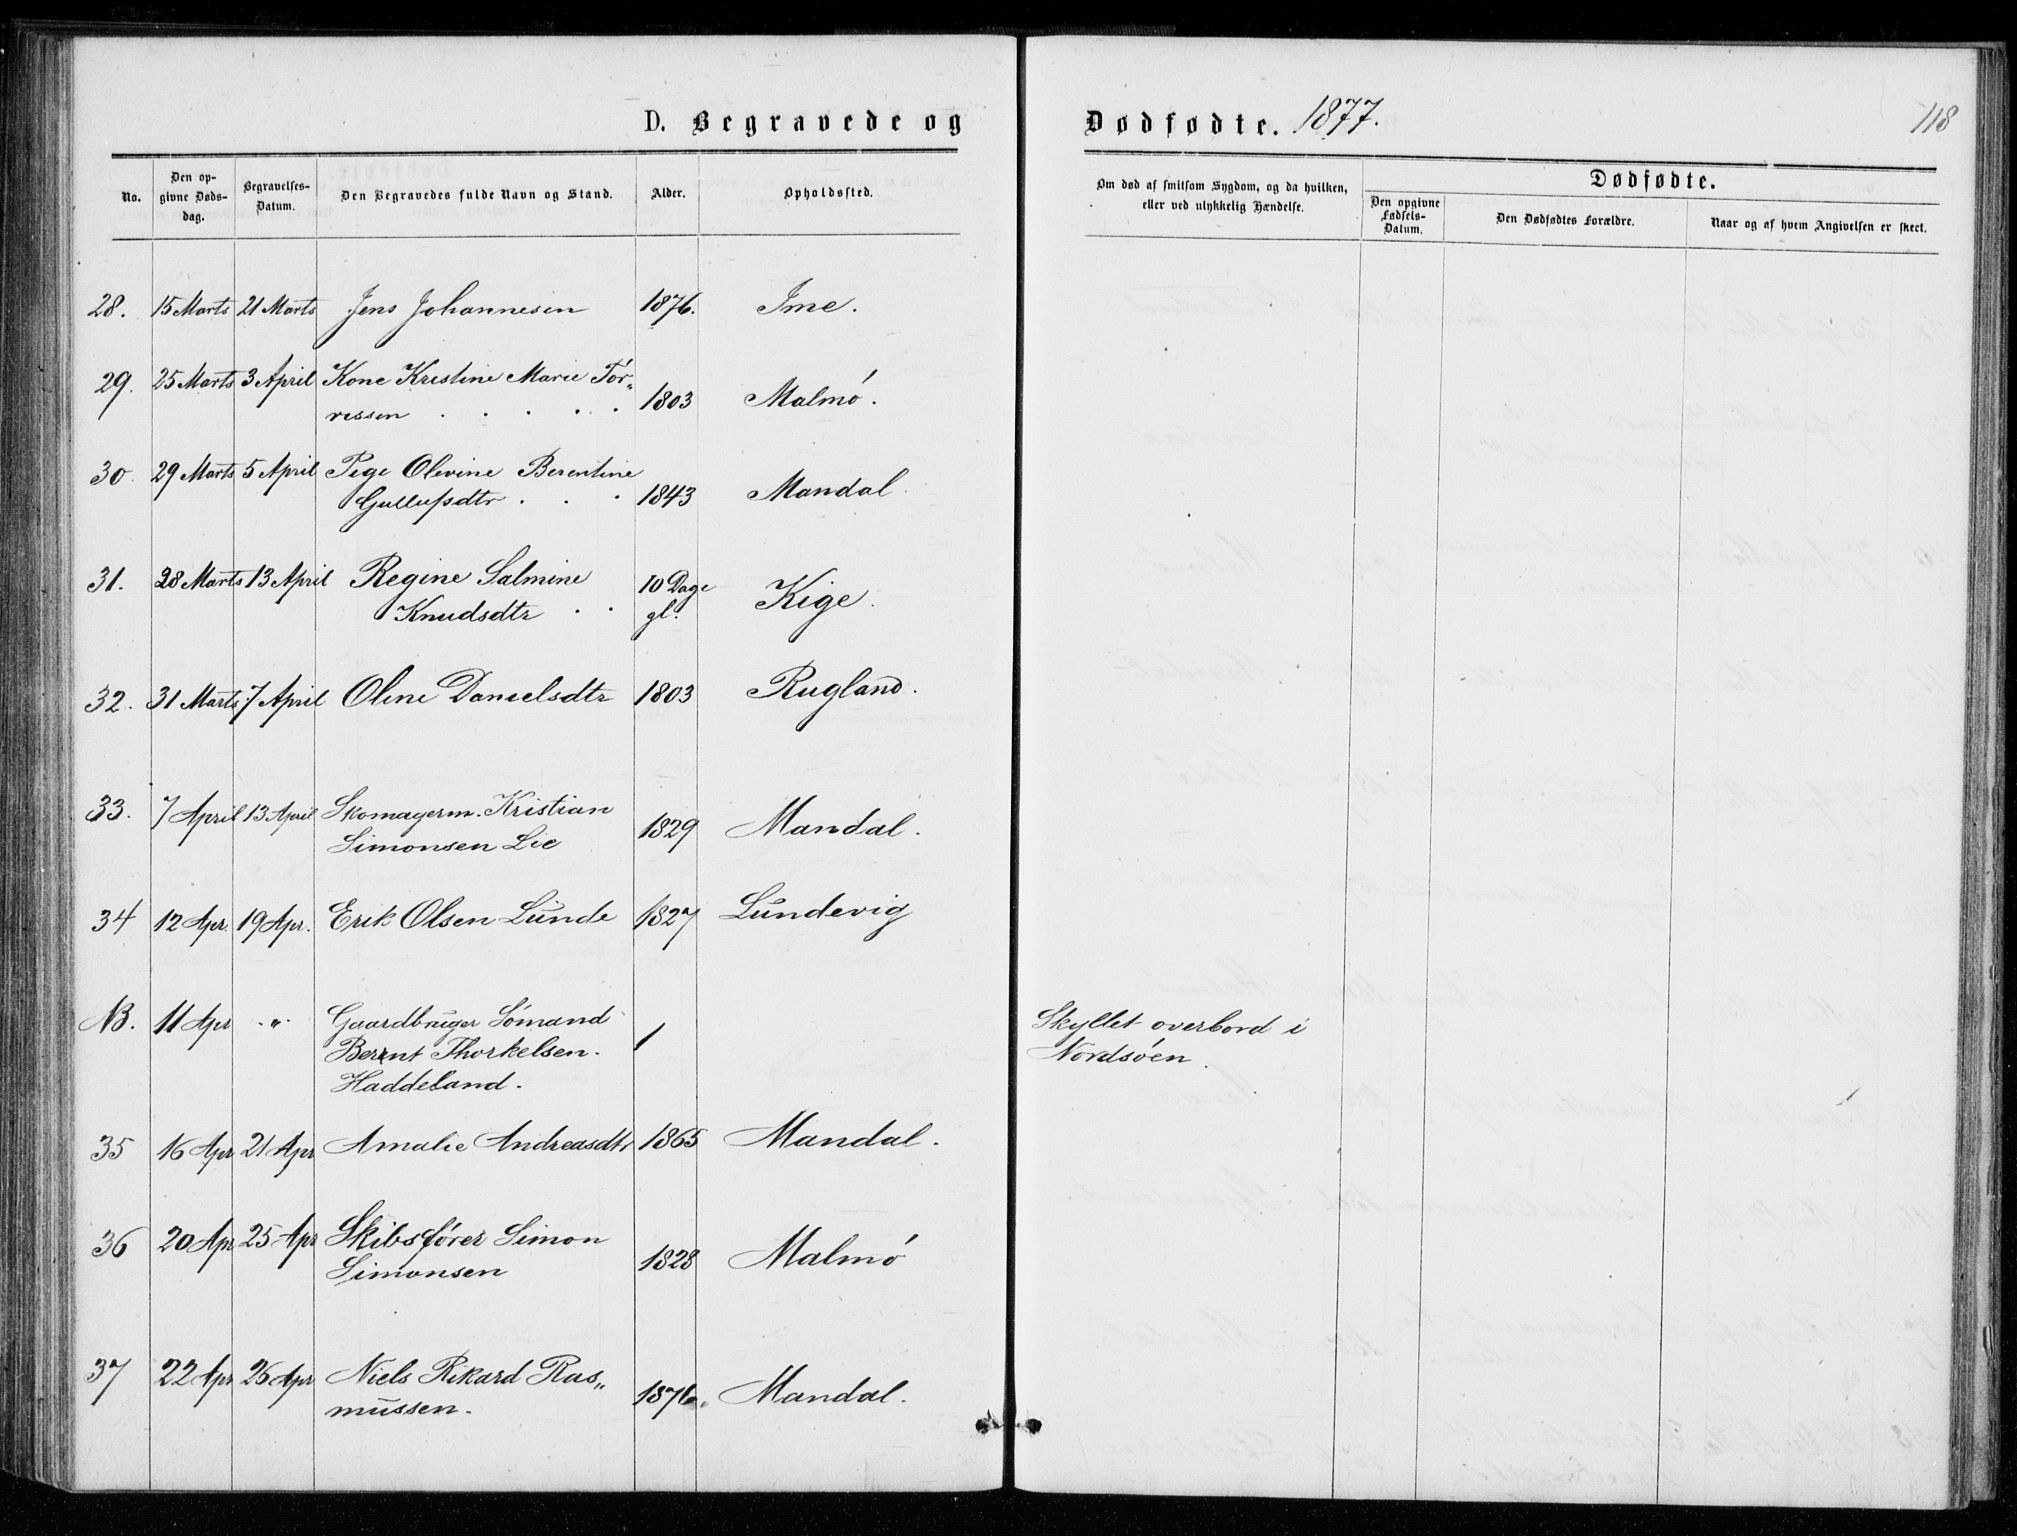 D. Begravede og Dødfødte. 1877.
118
No.
Den opgivne Dødsdag.
Begravelses-Datum.
Den Begravedes fulde Navn og Stand.
Alder.
Opholdssted.
Om død af smitsom Sygdom, og da hvilken,
eller ved ulykkelig Hændelse.
Dødfødte.
Den opgivne Fødsels-Datum.
Den Dødfødtes Forældre.
Naar og af hvem Angivelsen er skeet.
28. 15 Marts 21 Marts Jens Johannesen 1876. Ime.
29. 25 Marts 3 April Kone Kristine Marie Tór„
ressen . . . . . 1803 Malmó.
30. 29 Marts 5 April Pige Olevine Berentine
Gullufsdtr . . . 1843 Mandal.
31. 28 Marts 13 April Regine Salmine 10 Dage
Knudsdtr . . gl. Kige.
32. 31 Marts 7 April Oline Danielsdtr 1803 Rugland.
33. 7 April 13 April Skomagerm. Kristian
Simonsen Lie 1829 Mandal.
34 12 Apr. 19 Apr. Erik Olsen Lunde 1827 Lundevig
NB. 11 Apr - „ - Gaardbruger Sómand Skyllet overbord i
Berent Thorkelsen. Nordsóen.
Haddeland.
35 16 Apr 21 Apr Amalie Andreasdtr 1865 Mandal.
36 20 Apr 25 Apr Skibsfórer Simon
Simonsen 1828 Malmó
37 22 Apr 26 Apr Niels Rikard Ras„
mussen. 1876. Mandal.